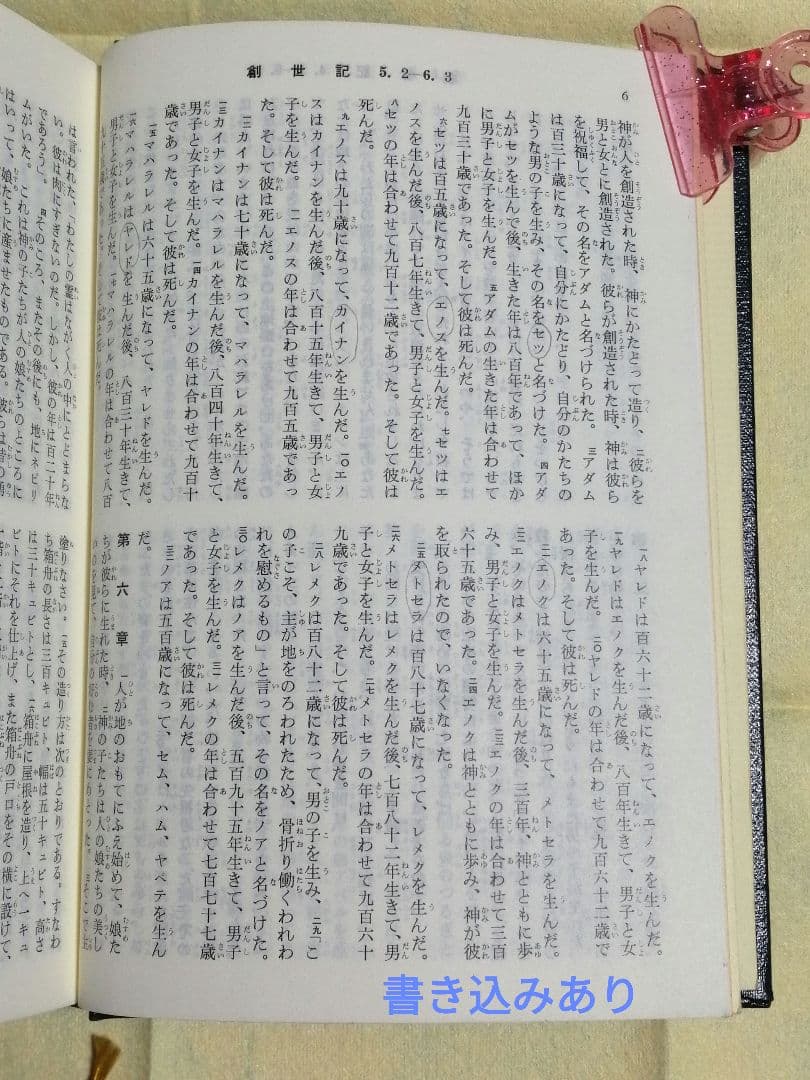 創世記 5.2—6.3
6
神が人を創造された時、神にかたどって造り、二彼らを
男と女とに創造された。彼らが創造された時、神は彼ら
を祝福して、その名をアダムと名づけられた。三アダム
は百三十歳になって、自分にかたどり、自分のかたちの
ような男の子を生み、その名をセツと名づけた。四アダ
ムがセツを生んで後、生きた年は八百年であって、ほか
に男子と女子を生んだ。五アダムの生きた年は合わせて
九百三十歳であった。そして彼は死んだ。
六セツは百五歳になって、エノスを生んだ。七セツはエ
ノスを生んだ後、八百七年生きて、男子と女子を生んだ。
八セツの年は合わせて九百十二歳であった。そして彼は
死んだ。
九エノスは九十歳になって、カイナンを生んだ。一〇エノ
スはカイナンを生んだ後、八百十五年生きて、男子と女
子を生んだ。一一エノスの年は合わせて九百五歳であっ
た。そして彼は死んだ。
一二カイナンは七十歳になって、マハラレルを生んだ。
一三カイナンはマハラレルを生んだ後、八百四十年生きて、
男子と女子を生んだ。一四カイナンの年は合わせて九百十
歳であった。そして彼は死んだ。
一五マハラレルは六十五歳になって、ヤレドを生んだ。
一六マハラレルはヤレドを生んだ後、八百三十年生きて、
男子と女子を生んだ。一七マハラレルの年は合わせて八百
一八ヤレドは百六十二歳になって、エノクを生んだ。
一九ヤレドはエノクを生んだ後、八百年生きて、男子と女
子を生んだ。二〇ヤレドの年は合わせて九百六十二歳で
あった。そして彼は死んだ。
二一エノクは六十五歳になって、メトセラを生んだ。
二二エノクはメトセラを生んだ後、三百年、神とともに歩
み、男子と女子を生んだ。二三エノクの年は合わせて三百
六十五歳であった。二四エノクは神とともに歩み、神が彼
を取られたので、いなくなった。
二五メトセラは百八十七歳になって、レメクを生んだ。
二六メトセラはレメクを生んだ後、七百八十二年生きて、男
子と女子を生んだ。二七メトセラの年は合わせて九百六十
九歳であった。そして彼は死んだ。
二八レメクは百八十二歳になって、男の子を生み、二九「こ
の子こそ、主が地をのろわれたため、骨折り働くわれわ
れを慰めるもの」と言って、その名をノアと名づけた。
三〇レメクはノアを生んだ後、五百九十五年生きて、男子
と女子を生んだ。三一レメクの年は合わせて七百七十七歳
であった。そして彼は死んだ。
三二ノアは五百歳になって、セム、ハム、ヤペテを生ん
だ。
第六章 一人が地のおもてにふえ始めて、娘た
ちが彼らに生れた時、二神の子たちは人の娘たちの美し
は言われた、「わたしの霊はながく人の中にとどまらな
い。彼は肉にすぎないのだ。しかし、彼の年は百二十年
であろう」。四そのころ、またその後にも、地にネピリ
ムがいた。これは神の子たちが人の娘たちのところに
はいって、娘たちに産ませたものである。
塗りなさい。一五その造り方は次のとおりである。すなわ
ち箱舟の長さは三百キュビト、幅は五十キュビト、高さ
は三十キュビトとし、一六箱舟に屋根を造り、上へ一キュ
ビトにそれを仕上げ、また箱舟の戸口をその横に設けて、
書き込みあり